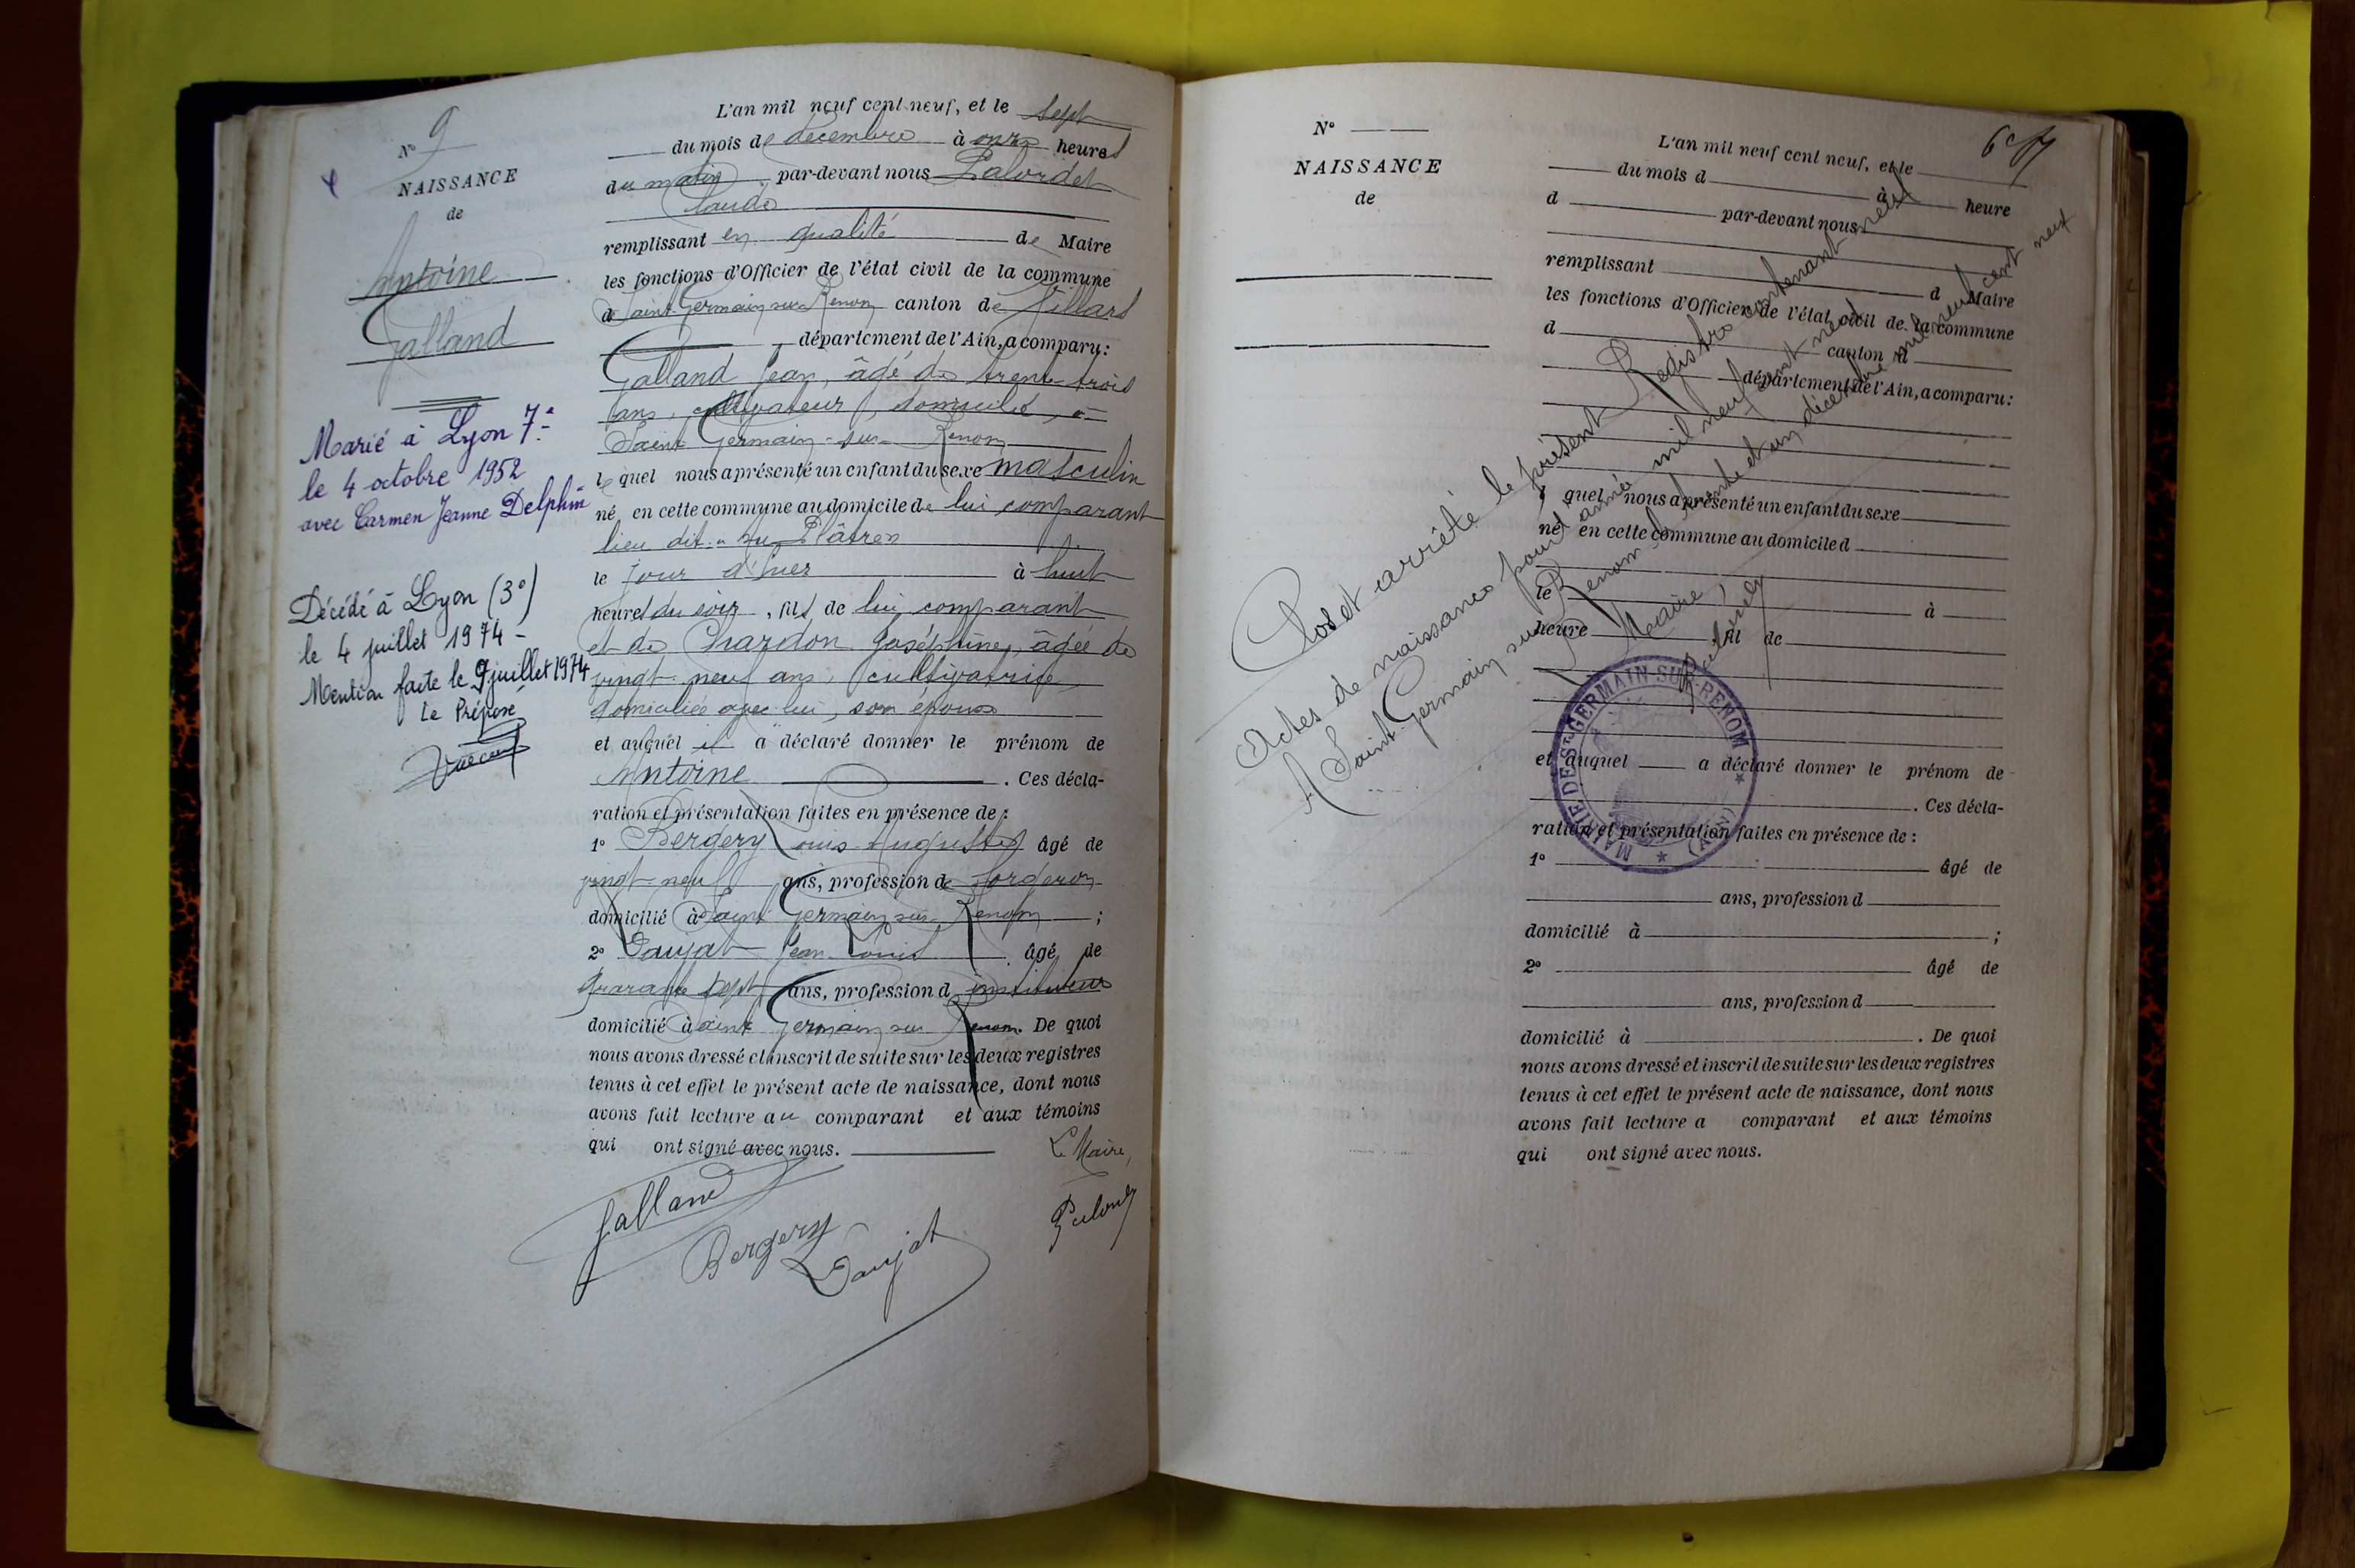 N° 9
NAISSANCE
de
Antoine
Galland
Marié à Lyon 7e
le 4 octobre 1952
avec Carmen Jeanne Delphin
Décédé à Lyon (3e)
le 4 juillet 1974 -
Mention faite le 9 juillet 1974
Le Préposé
L'an mil neuf cent neuf, et le sept
du mois de décembre à onze heures
du matin, par-devant nous
Claude
remplissant en qualité de Maire
les fonctions d'Officier de l'état civil de la commune
de Saint Germain sur Renom canton de Villars
département de l'Ain, a comparu:
Galland Jean, âgé de trente-trois
ans, cultivateur, domicilié, à
Saint Germain-sur-Renom
lequel nous a présenté un enfant du sexe masculin
né en cette commune au domicile de lui comparant
lieu dit
le jour d'hier à huit
heures du soir, fils de lui comparant
et de Chardon Joséphine, âgée de
vingt neuf ans, cultivatrice
domiciliée avec lui, son épouse
et auquel il a déclaré donner le prénom de
Antoine. Ces décla-
ration et présentation faites en présence de :
1° Bergery Louis Auguste âgé de
vingt-neuf ans, profession de forgeron
domicilié à Saint Germain sur Renom ;
2° Daujat Jean Louis âgé de
quarante sept ans, profession d instituteur
domicilié à Saint Germain sur Renom. De quoi
nous avons dressé et inscrit de suite sur les deux registres
tenus à cet effet le présent acte de naissance, dont nous
avons fait lecture au comparant et aux témoins
qui ont signé avec nous.
Le Maire,
Galland
Bergery
Daujat
N°
NAISSANCE
de
L'an mil neuf cent neuf, et le
du mois d à heure
d par-devant nous
remplissant d Maire
les fonctions d'Officier de l'état civil de la commune
d canton d
département de l'Ain, a comparu:
quel nous a présenté un enfant du sexe
né en cette commune au domicile d
le à
heure , fil de
et auquel a déclaré donner le prénom de
. Ces décla-
ration et présentation faites en présence de :
1° âgé de
ans, profession d
domicilié à ;
2° âgé de
ans, profession d
domicilié à . De quoi
nous avons dressé et inscrit de suite sur les deux registres
tenus à cet effet le présent acte de naissance, dont nous
avons fait lecture a comparant et aux témoins
qui ont signé avec nous.
Clos et arrêté le présent Registre contenant neuf
Actes de naissance pour l'année mil neuf cent neuf
A Saint-Germain sur Renom le trente et un décembre mil neuf cent neuf
Maire,
MAIRIE DE ST GERMAIN-SUR-RENOM
(AIN)